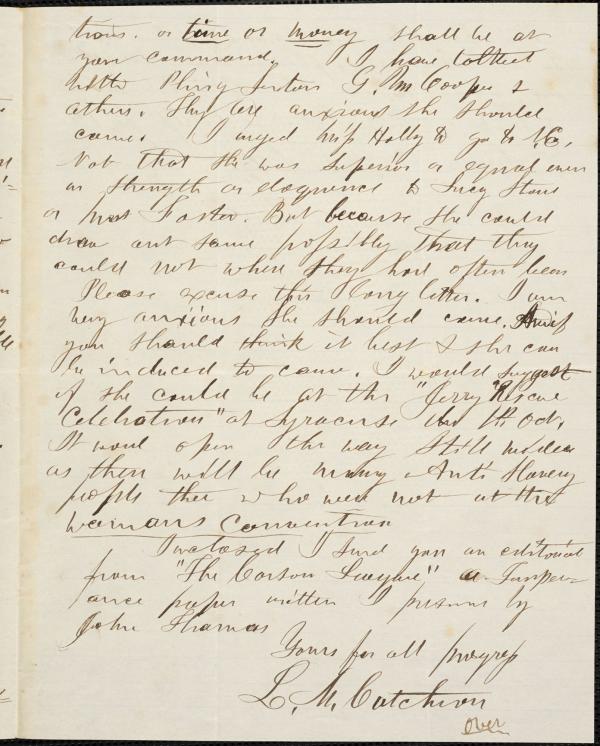 tions. or time or money shall be at
your command. I have talked
with Pliny Sexton G. M Cooper &
others. They are anxious she should
come. I urged Miss Holly to go to N.C.
Not that she was superior or equal even
in strength or eloquence to Lucy Stone
or Mrs Foster. But because she could
draw out some possibly that they
could not where they had often been
Please excuse this long letter. I am
very anxious she should come. And if
you should think it best & she can
be induced to come. I would suggest
if she could be at the "Jerry Rescue
Celebration" at Syracuse the 1st Oct.
It would open the way still wider
as there will be many Anti Slavery
people there who were not at the
Womans Convention
Inclosed I send you an editorial
from "The Carson League," a Temper=
ance paper written I presume by
John Thomas
Yours for all progress
L. M. Cutcheon
over